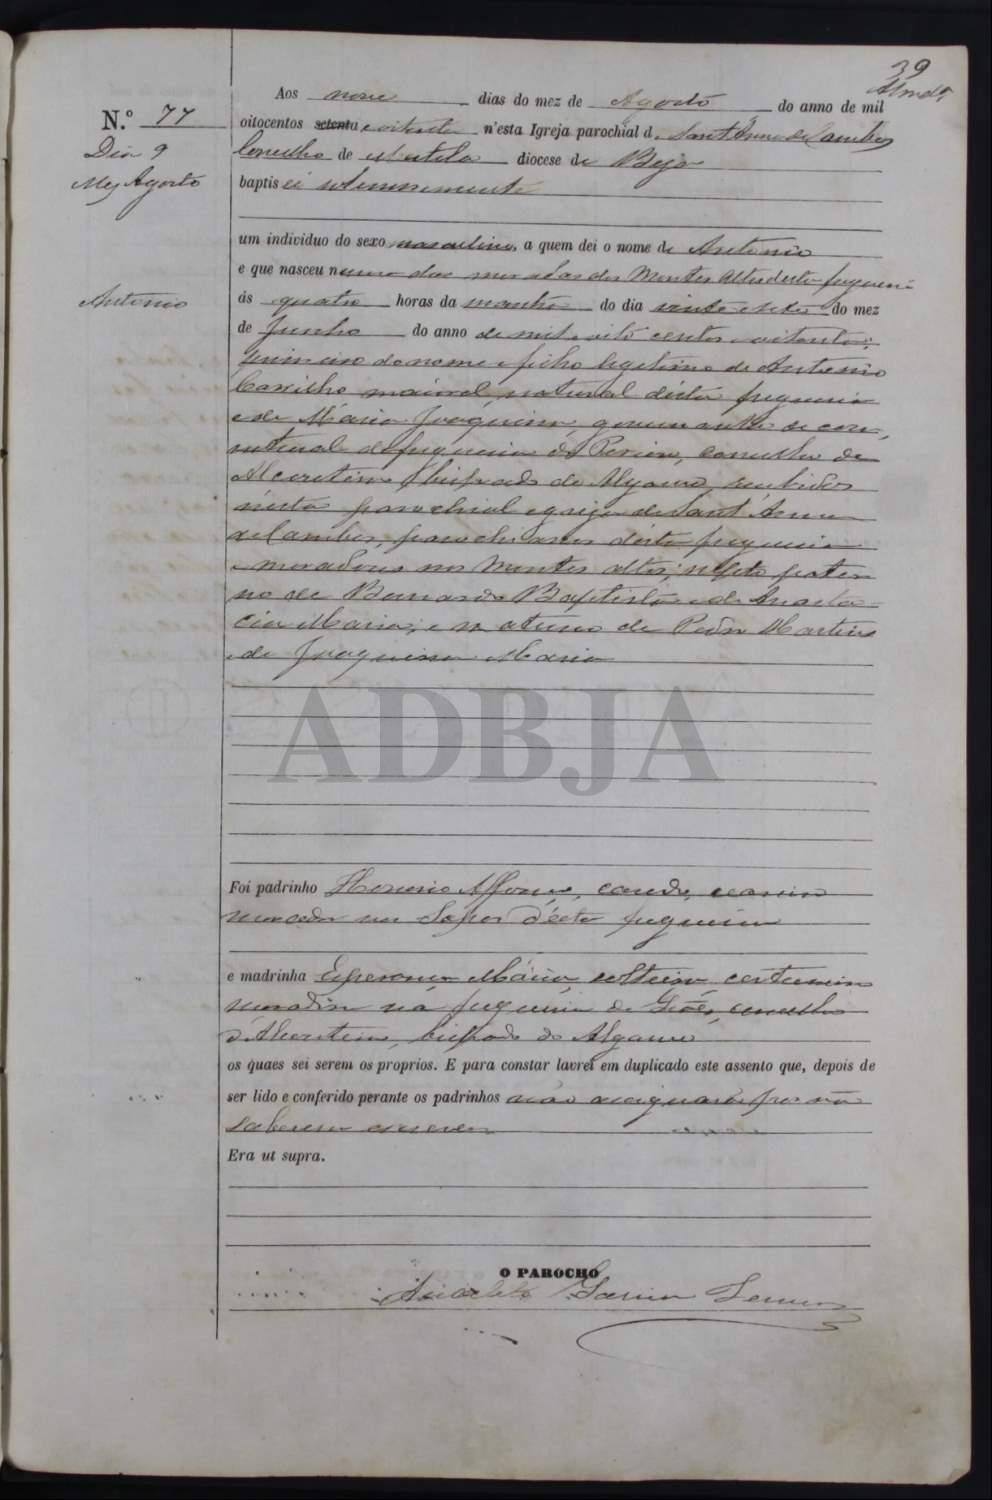 39
N.º 77
Dia 9
Mez Agosto
Antonio
Aos nove dias do mez de Agosto do anno de mil
oitocentos setenta e oitenta n'esta Igreja parochial de Sant'Anna de Cambas
Concelho de Mertola diocese de Beja
baptisei solemnemente
um individuo do sexo masculino, a quem dei o nome de Antonio
e que nasceu n das moradas dos Montes Altos desta freguesia
ás quatro horas da manhã do dia vinte e sete do mez
de Junho do anno de mil oito centos e oitenta;
primeiro do nome e filho legitimo de Antonio
Carrilho, maioral, natural d'esta freguesia
e de Maria Joaquina, governante de casa,
natural da freguesia do Pereiro, concelho de
Alcoutim Bispado do Algarve, recebidos
n'esta parochial egreja de Sant'Anna
de Cambas, parochianos d'esta freguesia
e moradores nos Montes altos; neto pater
no de Bernardo Baptista e de Anasta
cia Maria; e materno de Pedro Martins
e de Joaquina Maria
ADBJA
Foi padrinho Affonso, casado,
morador na d'esta freguesia
e madrinha Esperança Maria, solteira,
moradora na freguesia de Giões, concelho
d'Alcoutim, bispado do Algarve
os quaes sei serem os proprios. E para constar lavrei em duplicado este assento que, depois de
ser lido e conferido perante os padrinhos não assignaram por não
saberem escrever
Era ut supra.
O PAROCHO
Anacleto Garcia